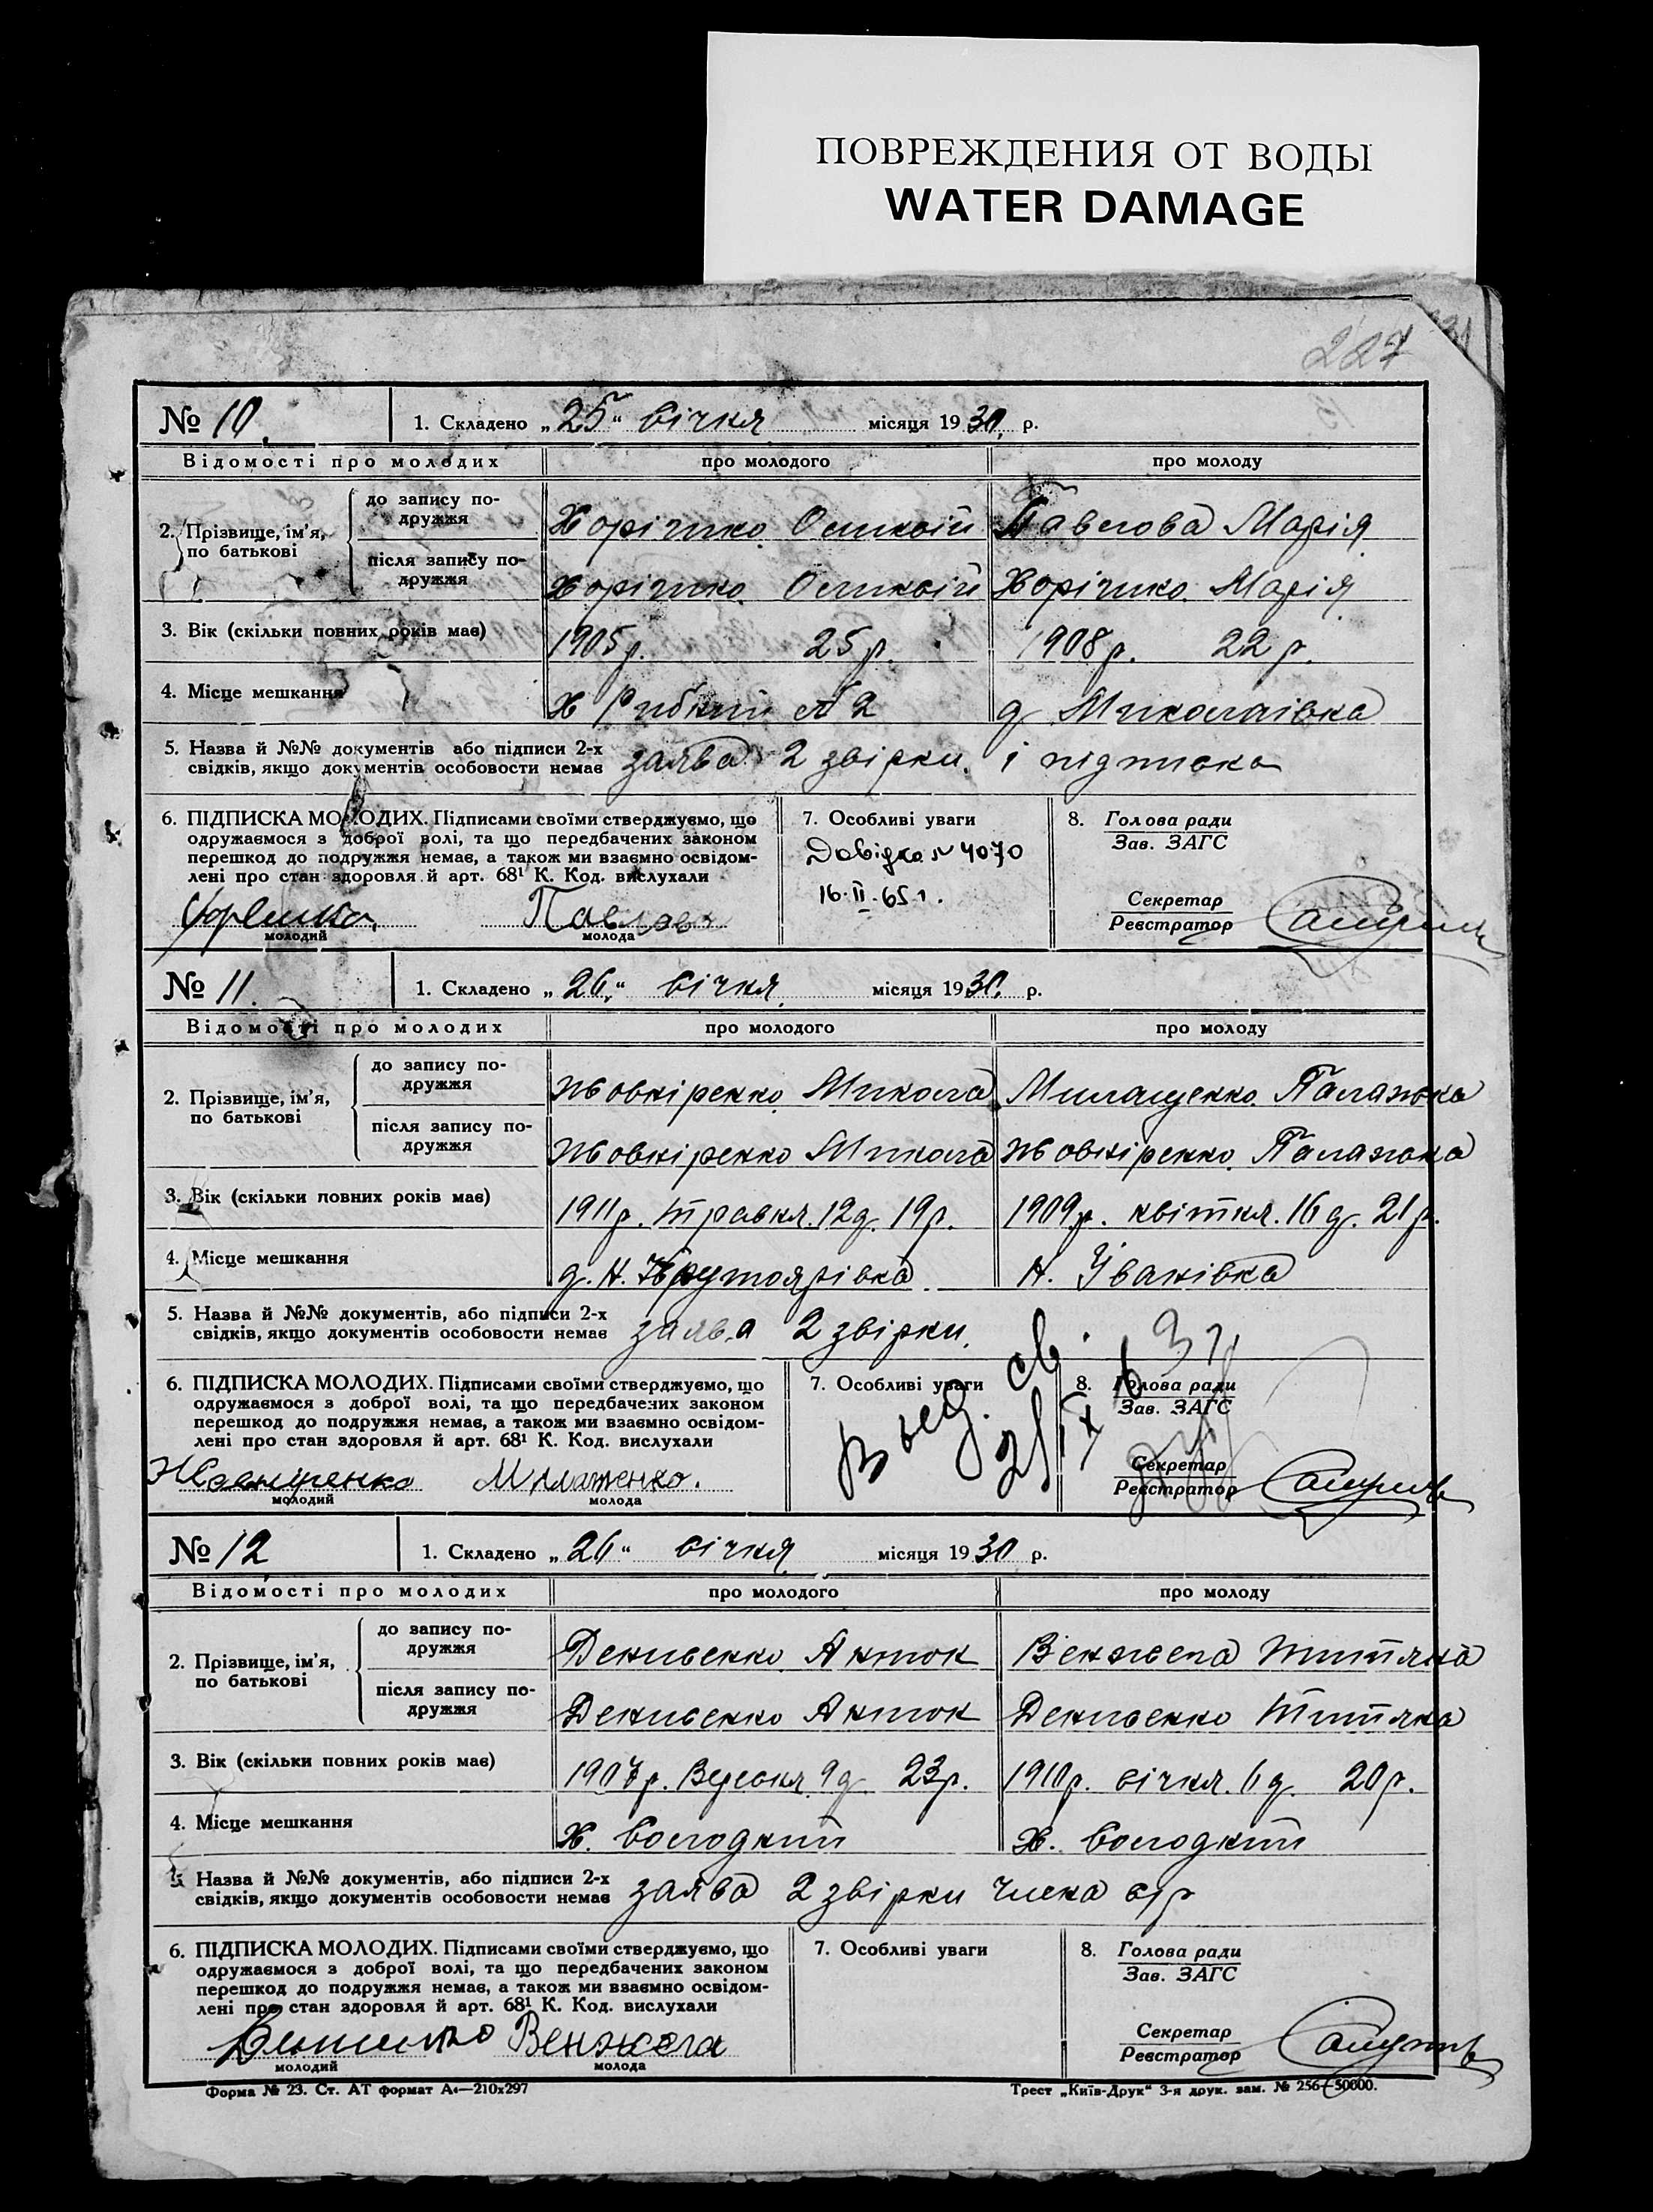 ПОВРЕЖДЕНИЯ ОТ ВОДЫ
WATER DAMAGE
227
№ 10. 1. Складено „25“ січня місяця 1930. р.
Відомості про молодих про молодого про молоду
2. Прізвище, ім'я, по батькові
до запису подружжя Хорішко Павлова Марія
після запису подружжя Хорішко Хорішко Марія
3. Вік (скільки повних років має) 1905 р. 25 р. 1908 р. 22 р.
4. Місце мешкання Х №2 д. Миколаївка
5. Назва й №№ документів або підписи 2-х
свідків, якщо документів особовости немає заява 2 звірки і підписка
6. ПІДПИСКА МОЛОДИХ. Підписами своїми стверджуємо, що
одружаємося з доброї волі, та що передбачених законом
перешкод до подружжя немає, а також ми взаємно освідом-
лені про стан здоровля й арт. 68¹ К. Код. вислухали
Павлова
молодий молода
7. Особливі уваги
Довідка № 4070
16.II.65 1.
8. Голова ради
Зав. ЗАГС
Секретар
Реєстратор
№ 11. 1. Складено „26“ січня місяця 1930. р.
Відомості про молодих про молодого про молоду
2. Прізвище, ім'я, по батькові
до запису подружжя Жовніренко Микола Милащенко Палажка
після запису подружжя Жовніренко Микола Жовніренко Палажка
3. Вік (скільки повних років має) 1911 р. травня 12 д. 19 р. 1909 р. квітня 16 д. 21 р.
4. Місце мешкання д. Н. Крутоярівка Н. Іванівка
5. Назва й №№ документів, або підписи 2-х
свідків, якщо документів особовости немає заява 2 звірки.
6. ПІДПИСКА МОЛОДИХ. Підписами своїми стверджуємо, що
одружаємося з доброї волі, та що передбачених законом
перешкод до подружжя немає, а також ми взаємно освідом-
лені про стан здоровля й арт. 68¹ К. Код. вислухали
Жовніренко
молодий молода
7. Особливі уваги
Выд. св.
8. Голова ради
Зав. ЗАГС
Секретар
Реєстратор
№ 12 1. Складено „26“ січня місяця 1930 р.
Відомості про молодих про молодого про молоду
2. Прізвище, ім'я, по батькові
до запису подружжя Денисенко Антон Венжега Титяна
після запису подружжя Денисенко Антон Денисенко Титяна
3. Вік (скільки повних років має) 1907 р. Вересня 9 д. 23 р. 1910 р. січня 6 д. 20 р.
4. Місце мешкання Х. Солодкий Х. Солодкий
5. Назва й №№ документів, або підписи 2-х
свідків, якщо документів особовости немає заява 2 звірки
6. ПІДПИСКА МОЛОДИХ. Підписами своїми стверджуємо, що
одружаємося з доброї волі, та що передбачених законом
перешкод до подружжя немає, а також ми взаємно освідом-
лені про стан здоровля й арт. 68¹ К. Код. вислухали
Венжега
молодий молода
7. Особливі уваги
8. Голова ради
Зав. ЗАГС
Секретар
Реєстратор
Форма № 23. Ст. АТ формат А4—210x297 Трест „Київ-Друк“ 3-я друк. зам. № 256—50000.